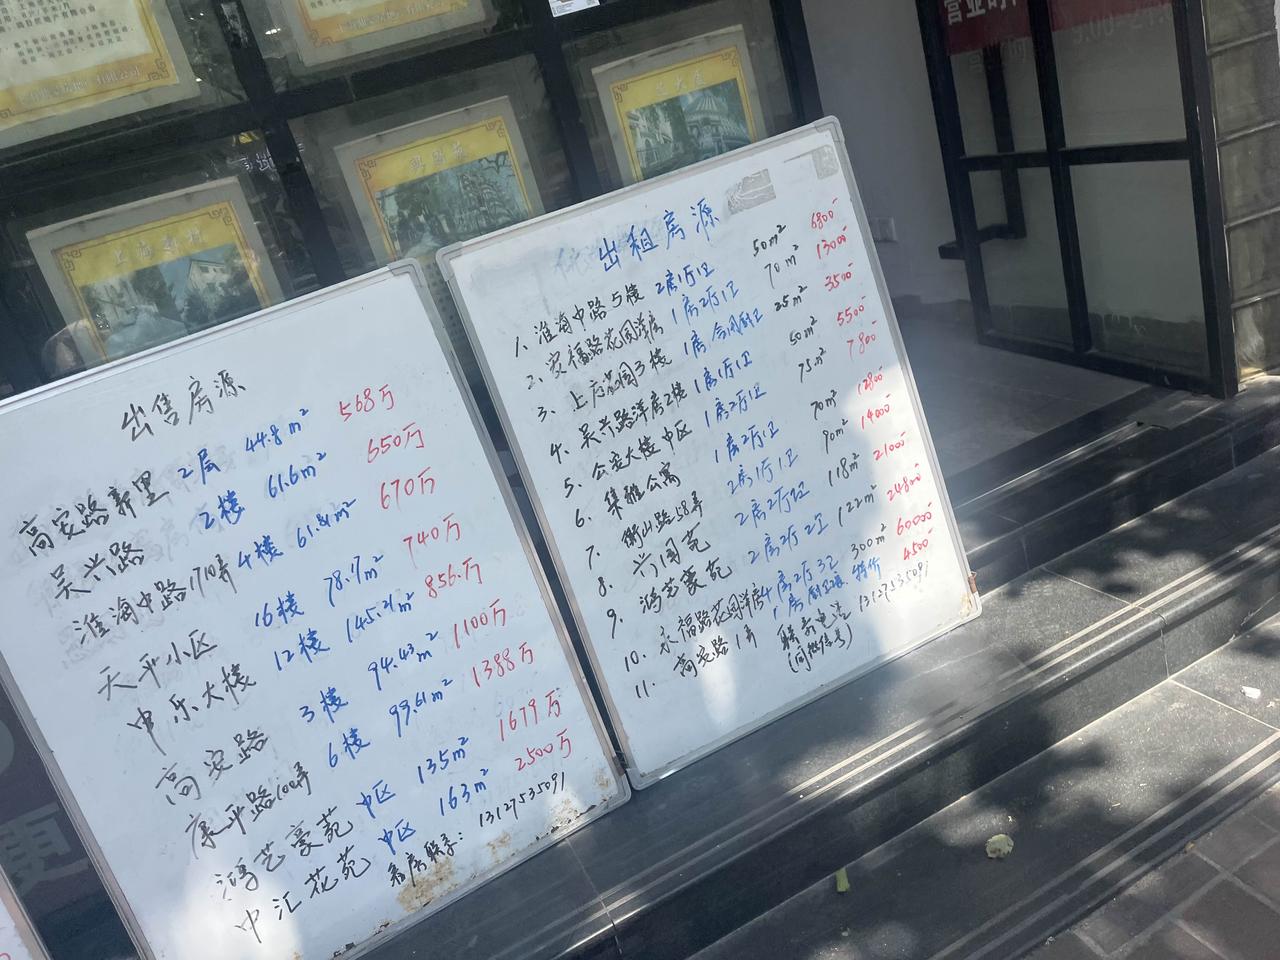 出售房源
高安路弄里 2层 44.8m² 568万
吴兴路 2楼 61.6m² 650万
淮海中路1710弄 4楼 61.81m² 670万
天平小区 16楼 78.7m² 740万
中乐大楼 12楼 145.21m² 856万
高安路 3楼 94.43m² 1100万
康平路100弄 6楼 99.61m² 1388万
鸿艺豪苑 中区 135m² 1679万
中汇花苑 中区 163m² 2500万
看房联系: 13127535091
出租房源
1. 淮海中路5楼 2房1厅1卫 50m² 6800
2. 安福路花园洋房 1房2厅1卫 70m² 13000
3. 上方花园3楼 1房合用厨卫 25m² 3500
4. 吴兴路洋房2楼 1房1厅1卫 50m² 5500
5. 公安大楼中区 1房2厅1卫 75m² 7800
6. 集雅公寓 1房2厅1卫 70m² 12800
7. 衡山路58弄 2房1厅1卫 90m² 14000
8. 兴国苑 2房2厅1卫 118m² 21000
9. 鸿艺豪苑 2房2厅2卫 122m² 24800
10. 永福路花园洋房 4房2厅3卫 300m² 60000
11. 高安路1弄 1房 特价 4500
联系电话 13127535091
(同微信号)
营业时
上海新村